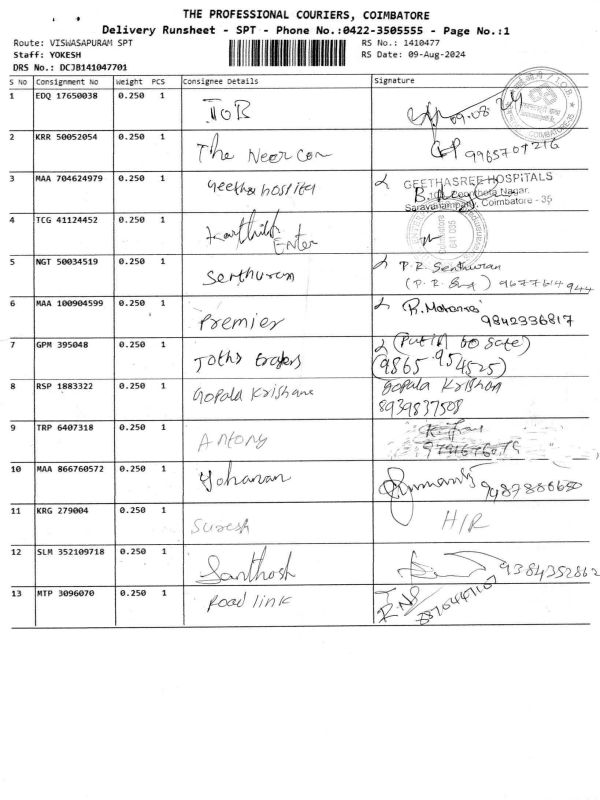 THE PROFESSIONAL COURIERS, COIMBATORE
Delivery Runsheet - SPT - Phone No.:0422-3505555 - Page No.:1
Route: VISWASAPURAM SPT RS No.: 1410477
Staff: YOKESH RS Date: 09-Aug-2024
DRS No.: DCJB141047701
S No Consignment No Weight PCS Consignee Details Signature
1 EDQ 17650038 0.250 1 IOB 09.08.24
COIMBATORE-35
2 KRR 50052054 0.250 1 The Neer con 9965707216
3 MAA 704624979 0.250 1 Geetha hospital
GEETHASREE HOSPITALS
Nagar,
Saravanampatty, Coimbatore - 35
4 TCG 41124452 0.250 1 Karthik Enter
Coimbatore
641 035
5 NGT 50034519 0.250 1 Senthuran P.R. Senthuran
9677614944
6 MAA 100904599 0.250 1 Premier
9842336817
7 GPM 395048 0.250 1 (Put in to Safe)
(9865 954525)
8 RSP 1883322 0.250 1 Gopala Krishana Gopala Krishan
8939837508
9 TRP 6407318 0.250 1 Antony
10 MAA 866760572 0.250 1 Yohanan
11 KRG 279004 0.250 1 Suresh H/R
12 SLM 352109718 0.250 1 Santhosh 9384352862
13 MTP 3096070 0.250 1 Road link